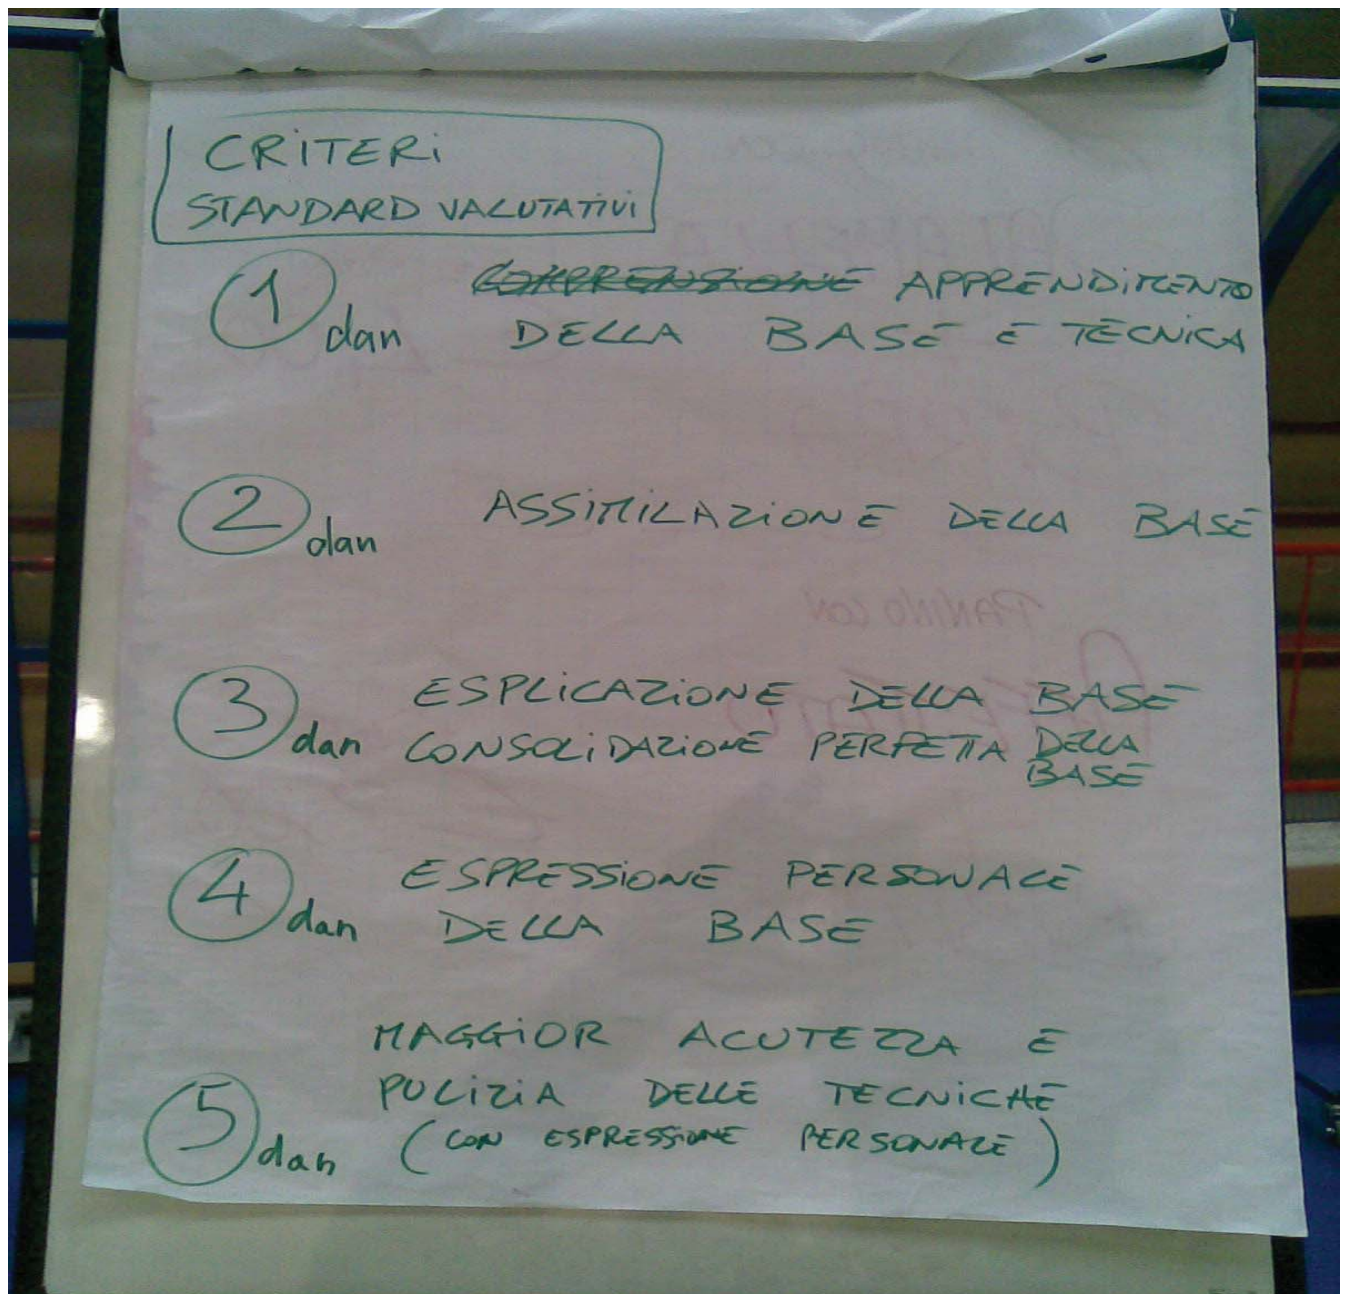 CRITERI
STANDARD VALUTATIVI
1 dan
COMPRENSIONE APPRENDIMENTO
DELLA BASE E TECNICA
2 dan
ASSIMILAZIONE DELLA BASE
3 dan
ESPLICAZIONE DELLA BASE
CONSOLIDAZIONE PERFETTA DELLA
BASE
4 dan
ESPRESSIONE PERSONALE
DELLA BASE
5 dan
MAGGIOR ACUTEZZA E
PULIZIA DELLE TECNICHE
(CON ESPRESSIONE PERSONALE)
PANINO CON